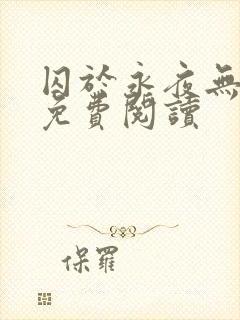 囚於永夜無
免費閱讀
保羅